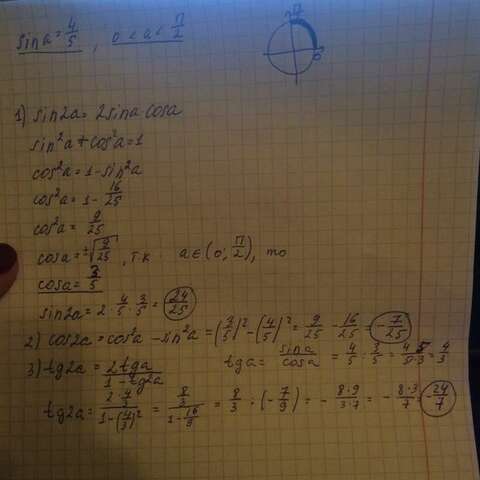 sina = 4/5 , 0 < a < π/2
π/2
0
1) sin2a = 2sina cosa
sin²a + cos²a = 1
cos²a = 1 - sin²a
cos²a = 1 - 16/25
cos²a = 9/25
cosa = ±√(9/25) , т.к. a ∈ (0; π/2), то
cosa = 3/5
sin2a = 2 · 4/5 · 3/5 = 24/25
2) cos2a = cos²a - sin²a = (3/5)² - (4/5)² = 9/25 - 16/25 = -7/25
3) tg2a = 2tga / 1 - tg²a
tga = sina/cosa = 4/5 : 3/5 = 4·5/5·3 = 4/3
tg2a = 2·4/3 / 1-(4/3)² = 8/3 / 1-16/9 = 8/3 · (-7/9) = - 8·9/3·7 = - 8·3/7 = -24/7